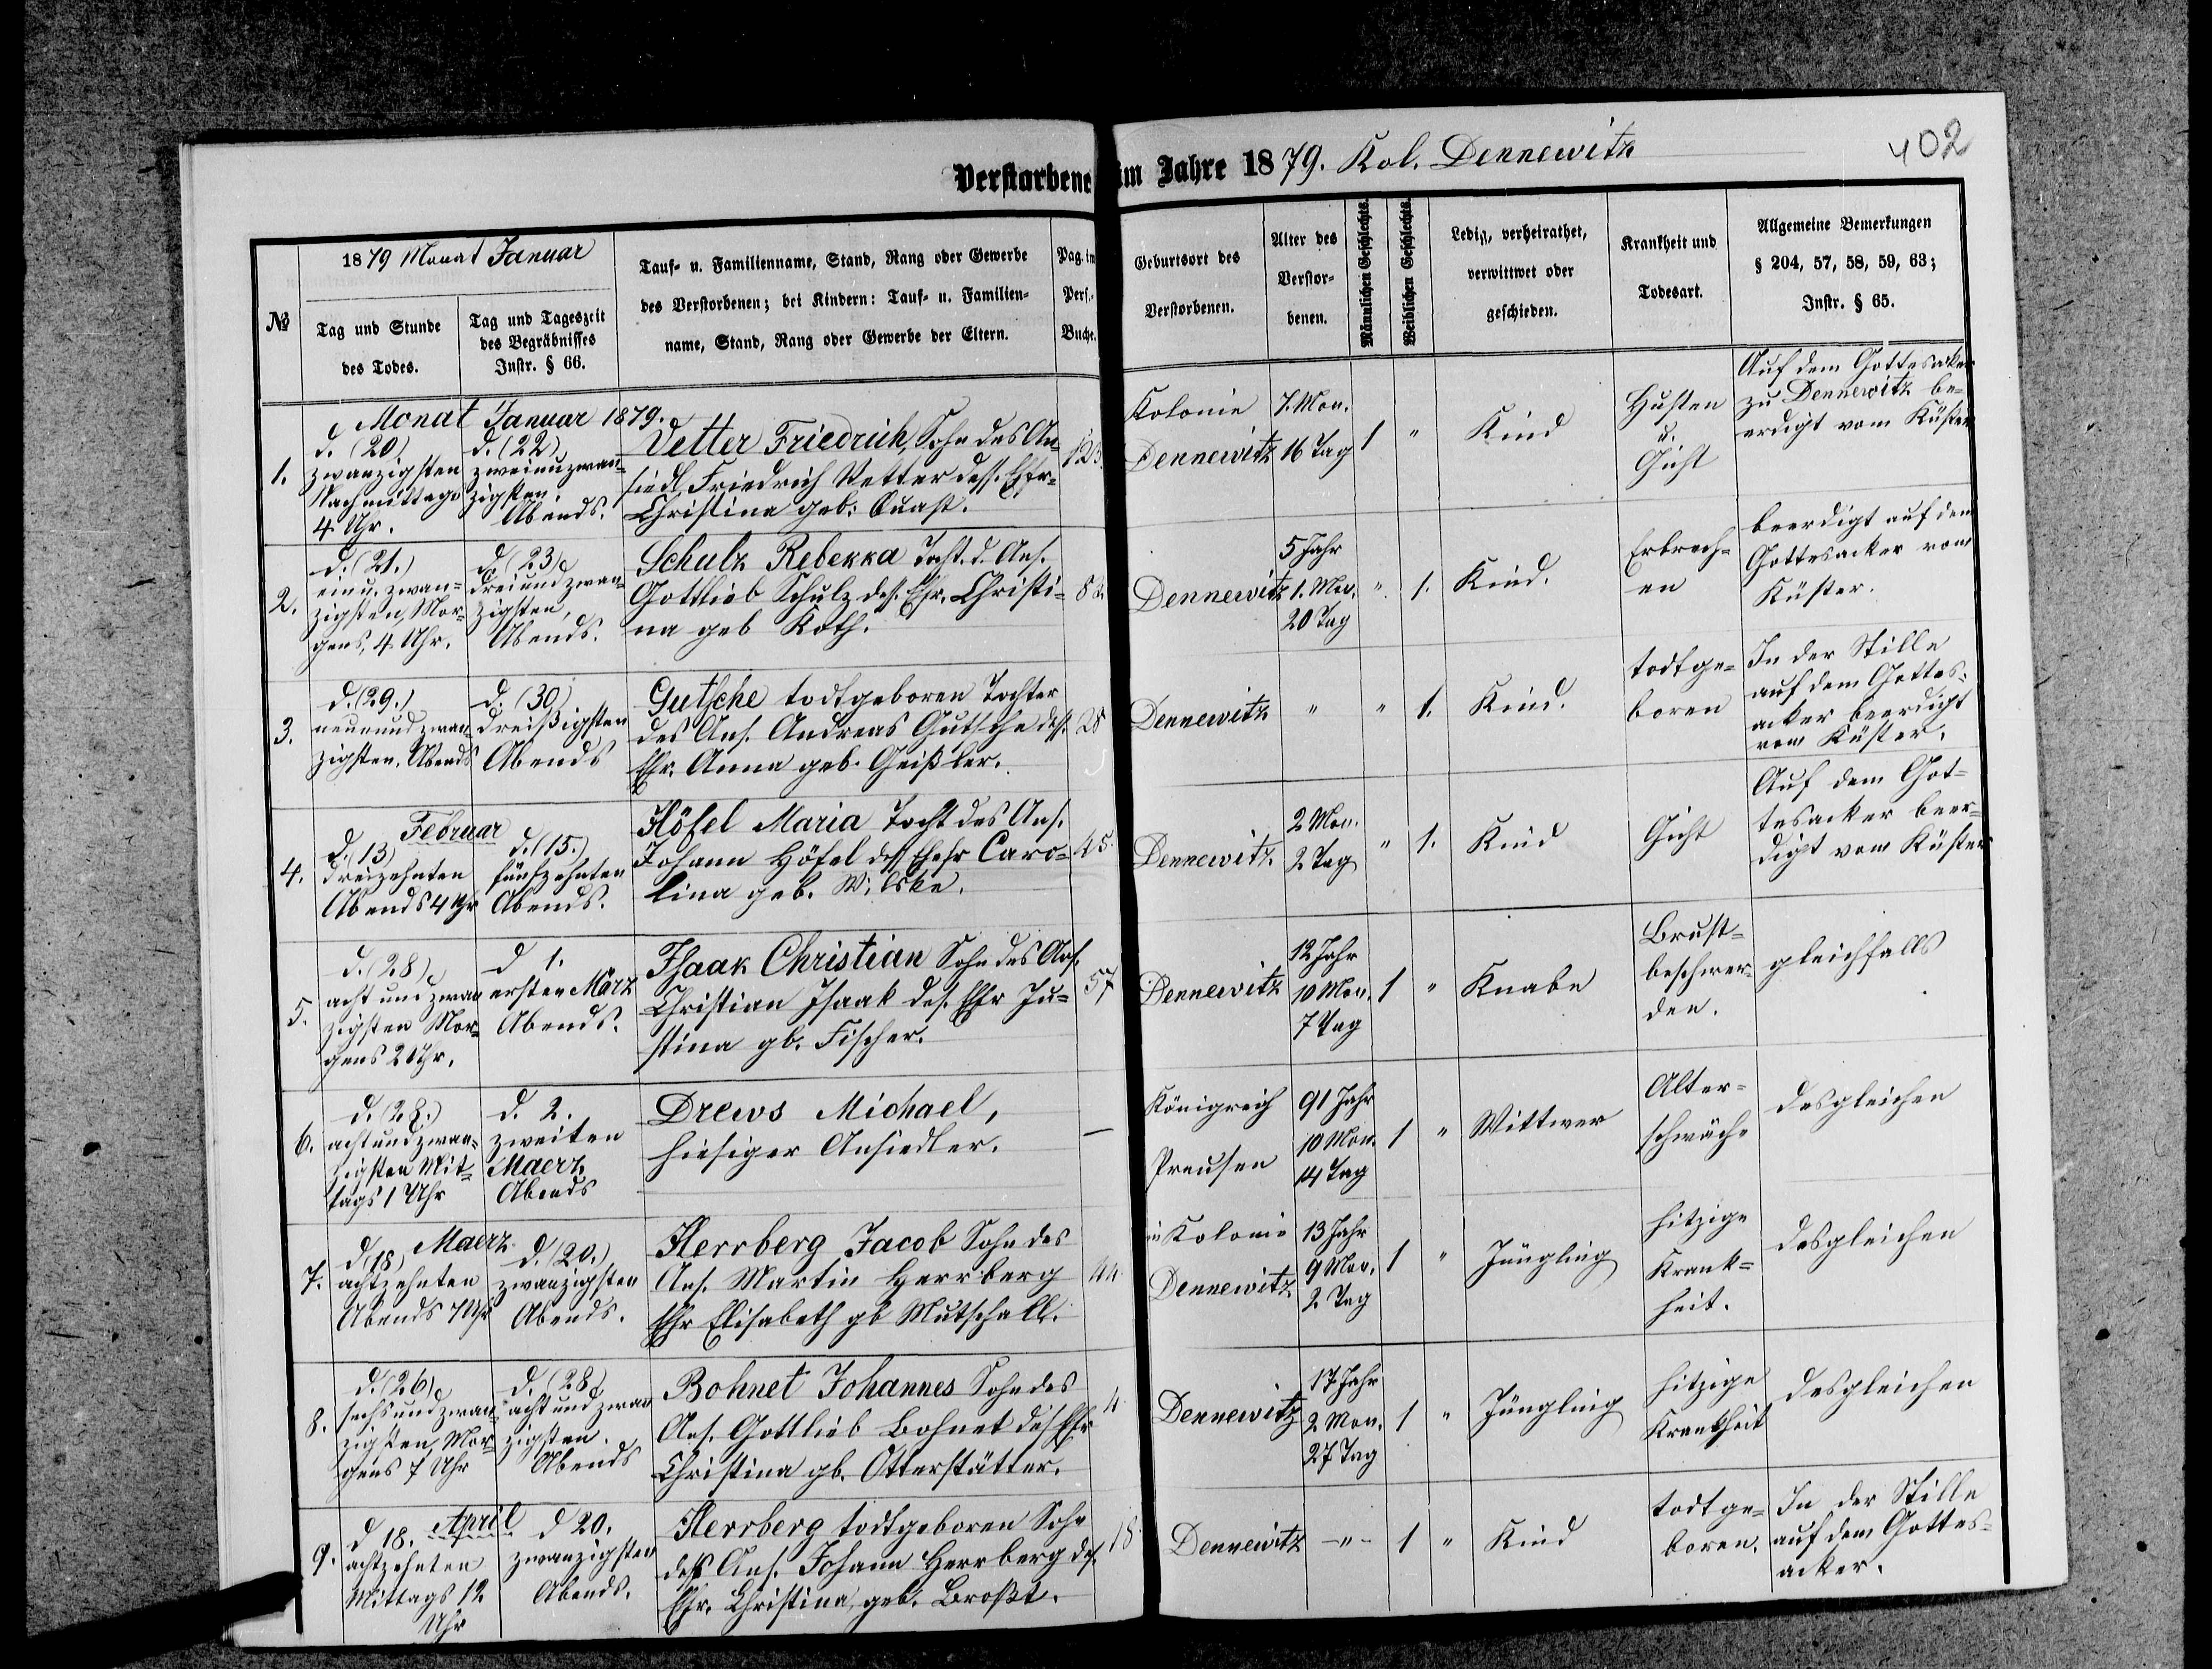 Verstorbene im Jahre 1879. Kol. Dennewitz
402
№
1879 Monat Januar
Tag und Stunde
des Todes.
Tag und Tageszeit
des Begräbnisses
Instr. § 66.
Tauf- u. Familienname, Stand, Rang oder Gewerbe
des Verstorbenen; bei Kindern: Tauf- u. Familien-
name, Stand, Rang oder Gewerbe der Eltern.
Pag. in
Pers.-
Buche.
Geburtsort des
Verstorbenen.
Alter des
Verstor-
benen.
Männlichen Geschlechts.
Weiblichen Geschlechts.
Ledig, verheirathet,
verwittwet oder
geschieden.
Krankheit und
Todesart.
Allgemeine Bemerkungen
§ 204, 57, 58, 59, 63;
Instr. § 65.
Monat Januar 1879.
1.
d. (20)
zwanzigsten
Nachmittags
4 Uhr.
d. (22)
zweiunzwan=
zigsten.
Abends.
Vetter Friedrich, Sohn des An=
siedl. Friedrich Vetter dess. Ehfr=
Christina geb. Quast.
123.
Kolonie
Dennewitz
7. Mon.
16 Tag
1
"
Kind
Husten
u.
Gicht
Auf dem Gottesacker
zu Dennewitz be=
erdigt vom Küster
2.
d. (21.)
ein u. zwan=
zigsten, Mor=
gens, 4 Uhr.
d. (23)
dreiundzwan=
zigsten,
Abends.
Schulz Rebekka Tocht. d. Ans.
Gottlieb Schulz des. Ehfr. Christi=
na geb Koth.
Dennewitz
5 Jahr
1. Mon.
20 Tag
"
1.
Kind.
Erbrech=
en
beerdigt auf dem
Gottesacker vom
Küster.
3.
d. (29.)
neunundzwan=
zigsten. Abends
d. (30)
dreißigsten
Abends
Gutsche todtgeboren Tochter
des Ans. Andreas Gutsche dess.
Ehfr. Anna geb. Geißler.
28
Dennewitz
"
"
1.
Kind.
todtge=
boren
In der Stille
auf dem Gottes=
acker beerdigt
vom Küster.
Februar
4.
d. (13)
dreizehnten
Abends 4 Uhr
d. (15.)
fünfzehnten
Abends.
Höfel Maria Tocht des Ans.
Johann Höfel dess Ehefr Caro=
lina geb. Wilske.
45.
Dennewitz.
2 Mon.
2 Tag
"
1.
Kind
Gicht
Auf dem Got=
tesacker beer=
digt vom Küster
5.
d. (28)
acht und zwan
zigsten Mor=
gens 2 Uhr.
d 1.
ersten März
Abends.
Isaak Christian Sohn des Ans.
Christian Isaak des. Ehfr Ju=
stina gb. Fischer.
57
Dennewitz
12 Jahr
10 Mon.
7 Tag
1
"
Knabe
Brust=
beschwer=
den.
gleichfalls
6.
d. (28.)
acht und zwan=
zigsten Mit=
tags 1 Uhr
d. 2.
zweiten
Maerz
Abends
Drews Michael,
hiesiger Ansiedler.
—
Königreich
Preusen
91 Jahr
10 Mon.
14 Tag
1
"
Wittwer
Alter=
schwäche
desgleichen
Maerz
7.
d (18)
achtzehnten
Abends 7 Uhr
d. (20.)
zwanzigsten
Abends.
Herrberg Jacob Sohn des
Ans. Martin Herrberg
Ehfr Elisabeth gb Mutschall.
44.
in Kolonie
Dennewitz
13 Jahr
9 Mon.
2 Tag
1
"
Jüngling
hitzige
Krank=
heit.
desgleichen
8.
d. (26)
sechsundzwan=
zigsten, Mor=
gens 7 Uhr
d. (28)
acht und zwan
zigsten.
Abends
Bohnet Johannes Sohn des
Ans. Gottlieb Bohnet des Ehfr
Christina gb. Otterstätter.
4
Dennewitz
17 Jahr
2 Mon.
27 Tag
1
"
Jüngling
hitzige
Krankheit
desgleichen
April
9.
d 18.
achtzehnten
Mittags 12
Uhr
d 20.
zwanzigsten
Abends.
Herrberg todtgeboren Sohn
dess Ans. Johann Herrberg des.
Ehfr. Christina, geb. Broßt.
18.
Dennewitz
-"-
1
"
Kind
todtge=
boren.
In der Stille
auf dem Gottes=
acker.